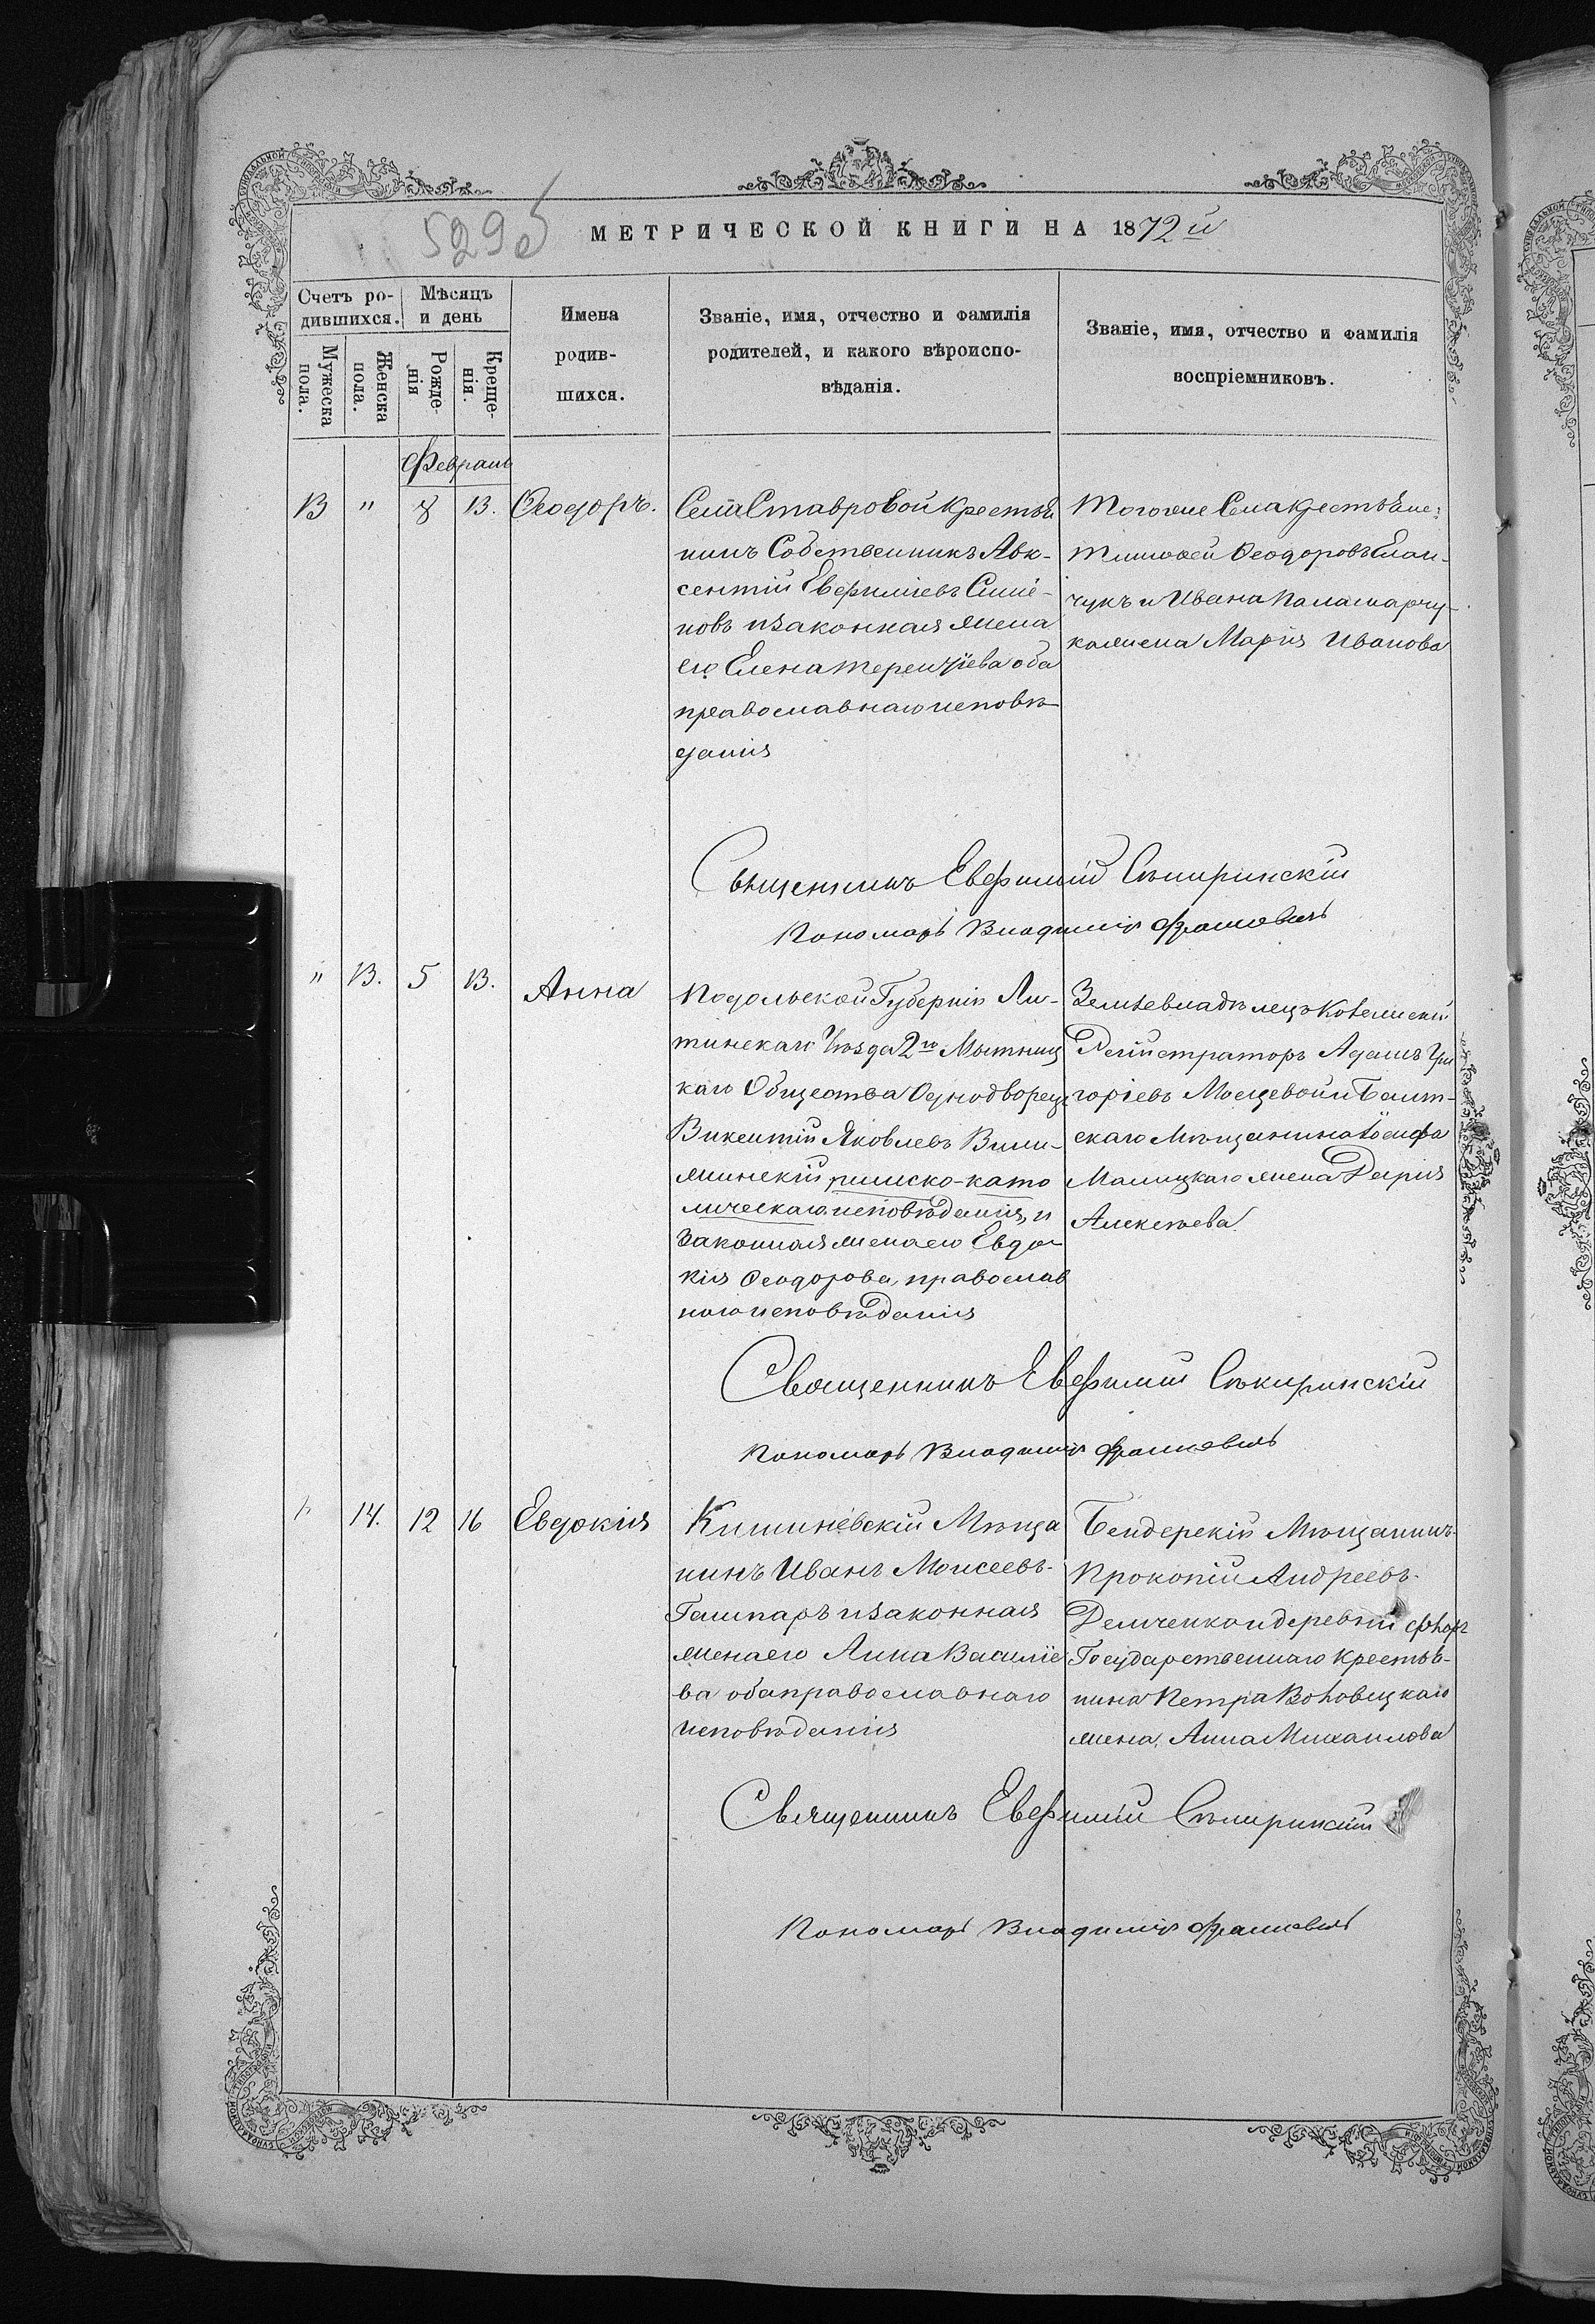 529 об
МЕТРИЧЕСКОЙ КНИГИ НА 1872й
Счетъ ро-
дившихся.
Мѣсяцъ
и день
Мужеска
пола.
Женска
пола.
Рожде-
нія
Креще-
нія.
Имена
родив-
шихся.
Званіе, имя, отчество и фамилія
родителей, и какого вѣроиспо-
вѣданія.
Званіе, имя, отчество и фамилія
воспріемниковъ.
Февраль
13 " 8 13. Ѳеодоръ.
Села Ставровой Крестья
нинъ Собственникъ Авк-
сентій Евфиміевъ
новъ и законная жена
его Елена Терентіева оба
православнаго исповѣ-
данія
Тогоже Села Крестьяне:
Тимофей Ѳеодоровъ
чукъ и Ивана Паламарчу-
ка жена Марія Иванова
Священникъ Евфимій Сѣкиринскій
Пономарь Владиміръ Франкевичъ
" 13. 5 13. Анна
Подольской Губерніи Ли-
тинскаго Уѣзда 2го Мытниц
каго Общества Однодворецъ
Викентій Яковлевъ
римско-като
лическаго исповѣданія, и
законная жена его Евдо-
кія Ѳеодорова, православ
наго исповѣданія
Землевладѣлецъ Колежскій
Регистраторъ Адамъ Гри
горіевъ и Балт-
скаго Мѣщанина Іосифа
Малицкаго жена Дарія
Алексѣева
Священникъ Евфимій Сѣкиринскій
Пономарь Владиміръ Франкевичъ
" 14. 12 16 Евдокія
Кишиневскій Мѣща
нинъ Иванъ Моисеевъ
Гашпаръ и законная
жена его Анна Василіе
ва оба православнаго
исповѣданія
Бендерскій Мѣщанинъ
Прокопій Андреевъ
Демченко и деревни
Государственнаго Крестья-
нина Петра
жена, Анна Михаилова
Священникъ Евфимій Сѣкиринскій
Пономарь Владиміръ Франкевичъ